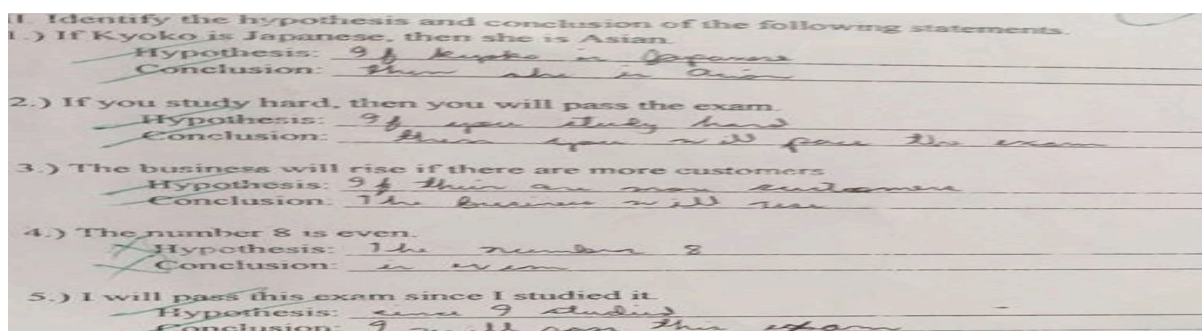 II. Identify the hypothesis and conclusion of the following statements.
1.) If Kyoko is Japanese, then she is Asian.
Hypothesis: If kyoko is Japanese
Conclusion: then she is Asian
2.) If you study hard, then you will pass the exam.
Hypothesis: If you study hard
Conclusion: then you will pass the exam
3.) The business will rise if there are more customers
Hypothesis: If their are more customers
Conclusion: The business will rise
4.) The number 8 is even.
Hypothesis: The number 8
Conclusion: is even
5.) I will pass this exam since I studied it.
Hypothesis: since I studied
Conclusion: I will pass this exam